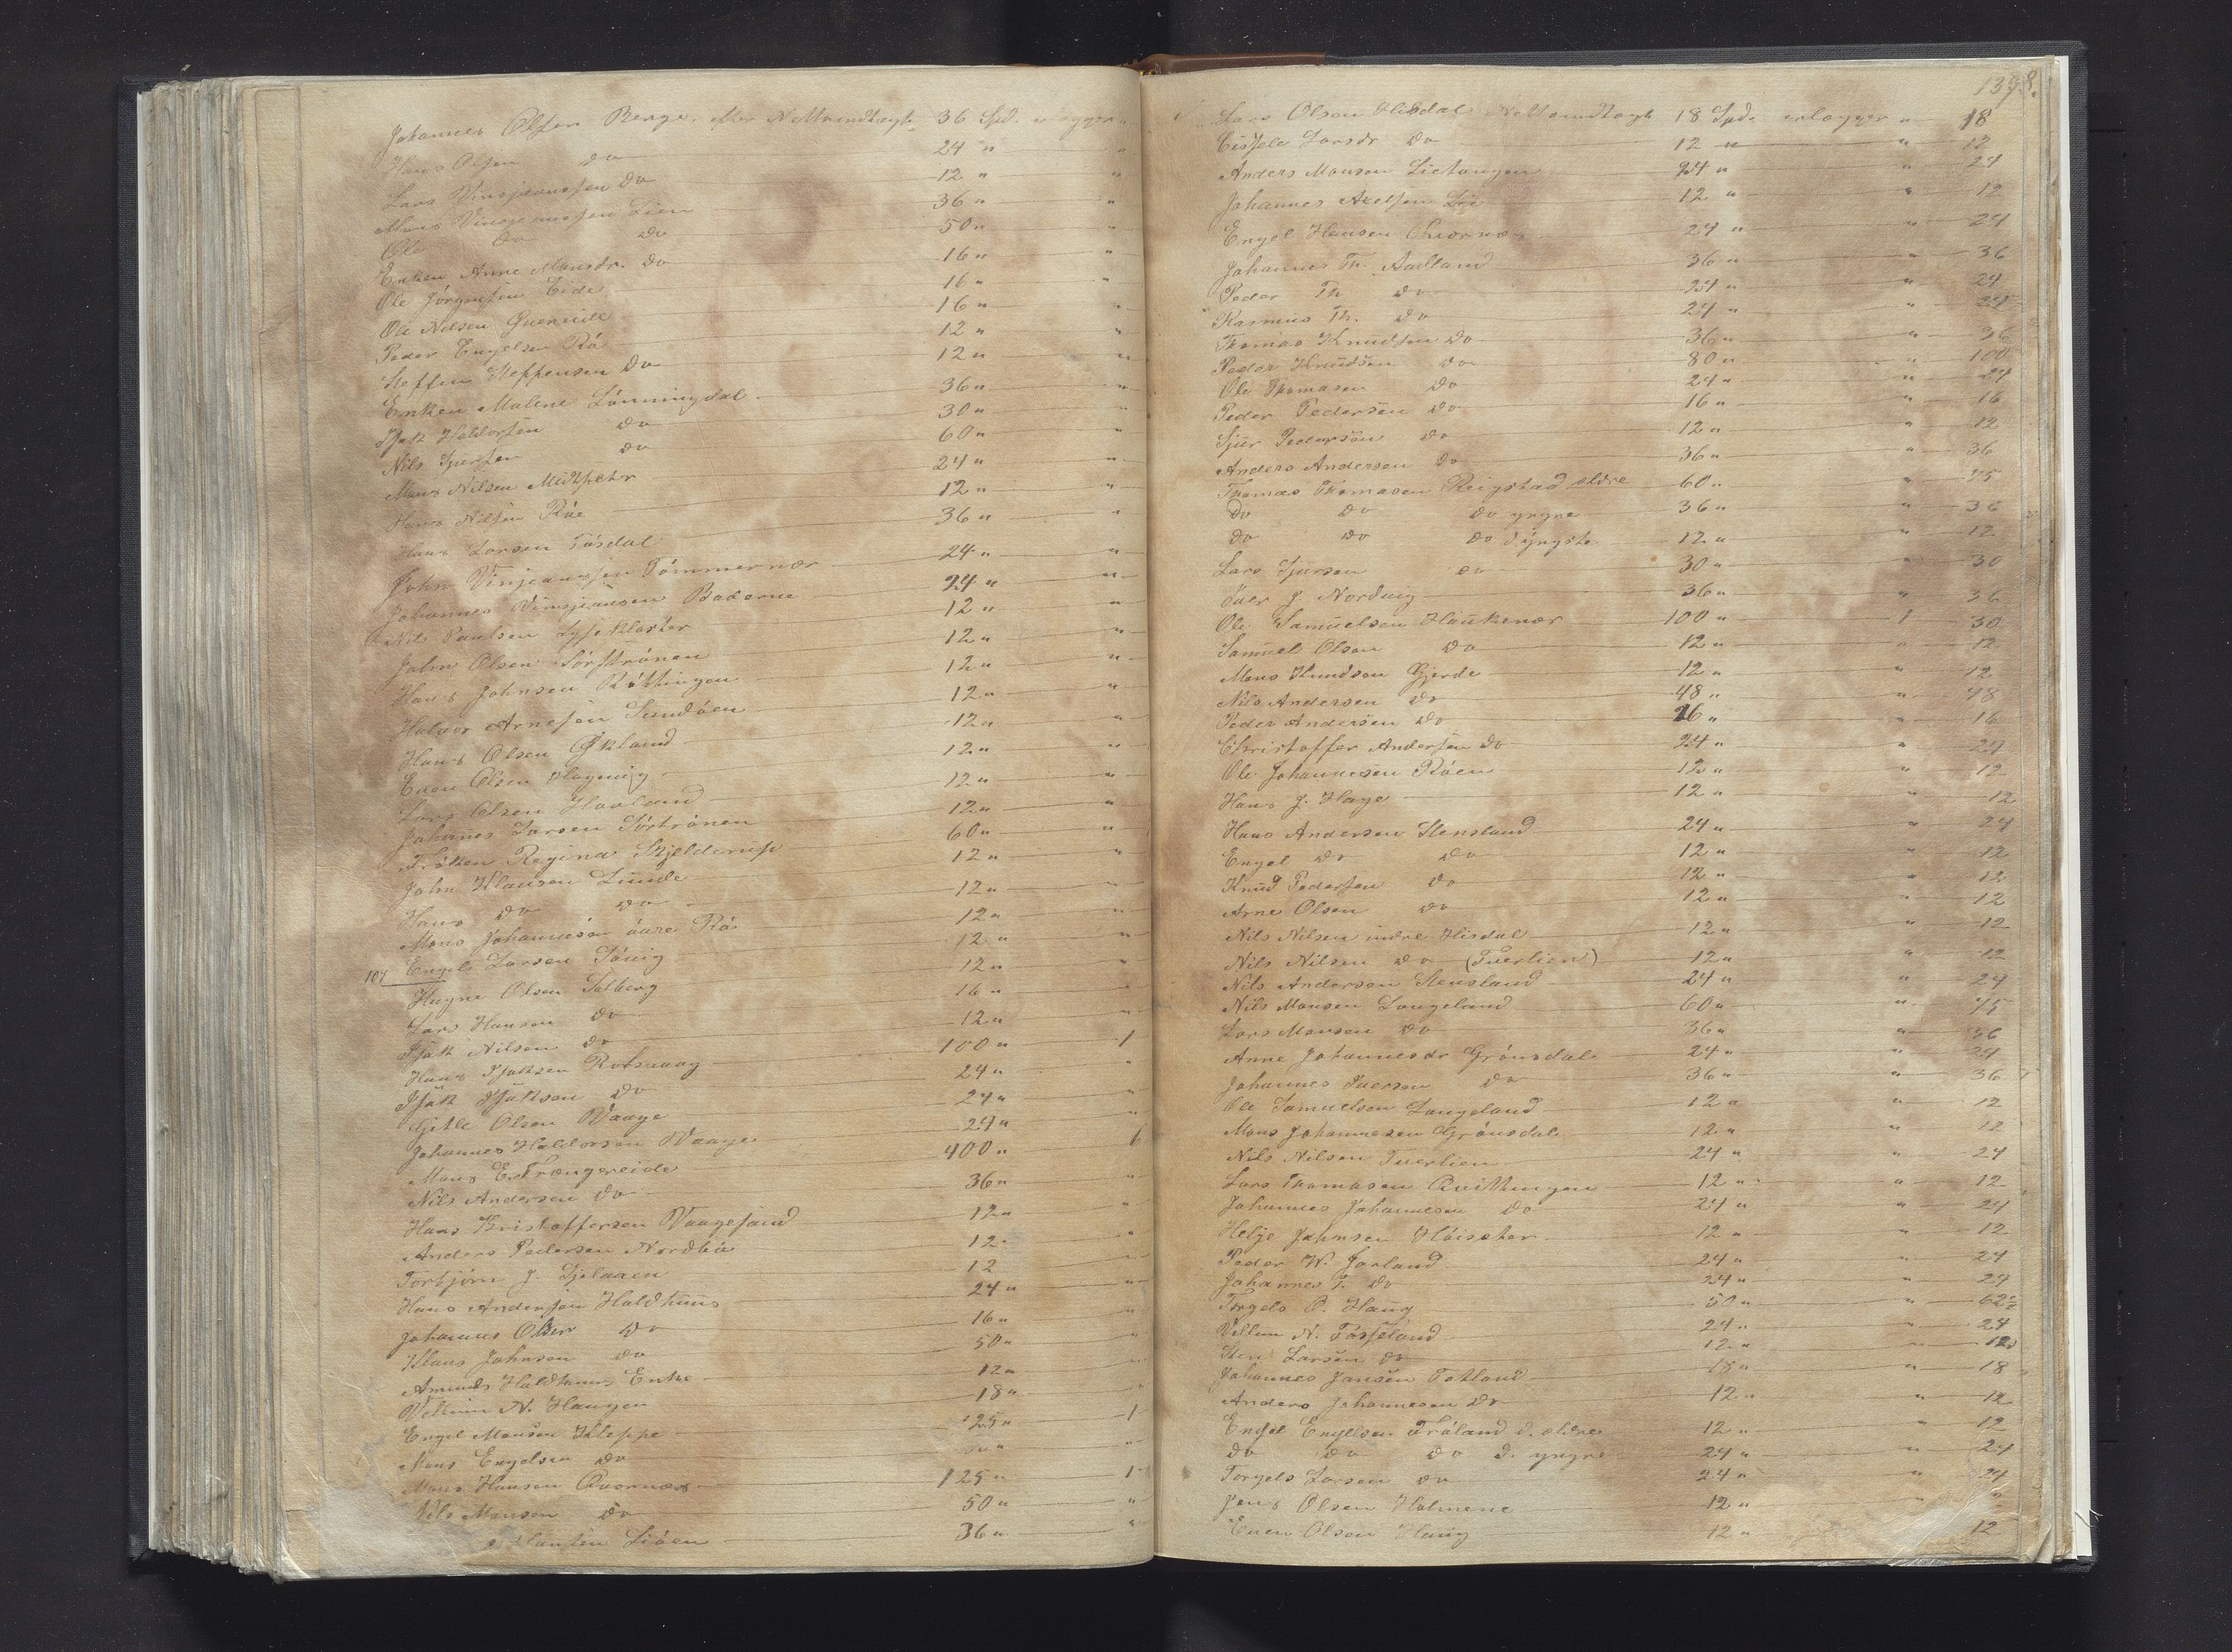 Johannes Olsen Berge, efter N Mtrindtægt 36 Spd. erlægger "
Hans Olsen do 24 " "
Lars Vinsjeanssen do 12 " "
Mons Vinsjeanssen Lien 36 " "
Ole do do 50 " "
Enken Anne Monsdr. do 16 " "
Ole Jörgensen Eide 16 " "
Ole Nilsen Guereide 16 " "
Peder Engelsen Rö 12 " "
Steffen Steffensen do 12 " "
Enken Malene Lönningdal 36 " "
Isak Haldorsen do 30 " "
Nils Sjursen do 60 " "
Mons Nilsen Midtsæter 24 " "
Hans Nilsen Röe 12 " "
Hans Larsen Tösdal 36 " "
John Vinjeanssen Tömmernæs 24 " "
Johannes Vinsjeansen Baderne 24 " "
Nils Paulsen Lysekloster 12 " "
John Olsen Sörströnen 12 " "
Hans Johnsen Röttingen 12 " "
Halvor Arnesen Sundöen 12 " "
Hans Olsen Økland 12 " "
Even Olsen Hagevig 12 " "
Lars Olsen Haaland 12 " "
Johannes Larsen Sörtrönen 12 " "
Fröken Regina Skjelderup 60 " "
John Klausen Lunde 12 " "
Hans do do 12 " "
Mons Johannesen öure Rö 12 " "
Engel Larsen Sövig 12 " "
107 Hagne Olsen Solberg 12 " "
Lars Hansen do 16 " "
Isak Nilsen do 12 " "
Hans Isaksen Rotsvaag 100 " 1
Isak Isaksen do 24 " "
Gjitle Olsen Waage 24 " "
Johannes Haldorsen Waage 24 " "
Mons E. Trængereide 400 " 6
Nils Andersen do 36 " "
Hans Kristoffersen Waagesand 12 " "
Anders Pedersen Nordbö 12 " "
Torbjörn J. Gjelaaen 12 "
Hans Andersen Haldhuus 24 " "
Johannes Olsen do 16 " "
Klaus Johnsen do 50 " "
Amunds Haldhuus Enke 12 " "
Vellum N. Haugen 18 " "
Engel Monsen Kleppe 125 " 1
Mons Engelsen do " "
Mons Hansen Qvernæs 125 " 1
Nils Monsen do 50 " "
Hansen Liöen 36 " "
1398.
Lars Olsen Hisdal N Mtrindtægt 18 Spd. erlægger " 18
Cissele Larsdr do 12 " " 12
Anders Monsen Lietangen 24 " " 24
Johannes Axelsen Lie 12 " " 12
Engel Hansen Qvernæs 24 " " 24
Johannes Th. Aadland 36 " " 36
Peder Th do 24 " " 24
Rasmus Th. do 24 " " 24
Thomas Knudsen do 36 " " 36
Peder Knudsen do 80 " " 100
Ole Thomasen do 24 " " 24
Peder Pedersen do 16 " " 16
Sjur Pedersen do 12 " " 12
Anders Andersen do 36 " " 36
Thomas Thomasen Reigstad ældre 60 " " 75
Do do do yngre 36 " " 36
Do do do d. yngste 12 " " 12
Lars Sjursen do 30 " " 30
Iver J. Nordvig 36 " " 36
Ole Samuelsen Haukenæs 100 " 1 30
Samuel Olsen do 12 " " 12
Mons Knudsen Gjerde 12 " " 12
Nils Andersen do 48 " " 48
Peder Andersen do 16 " " 16
Christoffer Andersen do 24 " " 24
Ole Johannesen Röen 12 " " 12
Hans J. Hage 12 " " 12
Hans Andersen Stensland 24 " " 24
Engel do do 12 " " 12
Knud Pedersen do 12 " " 12
Arne Olsen do 12 " " 12
Nils Nilsen indre Hisdal 12 " " 12
Nils Nilsen do (Tverlien) 12 " " 12
Nils Andersen Stensland 24 " " 24
Nils Monsen Langeland 60 " " 75
Lars Monsen do 36 " " 36
Anne Johannesdr Grönsdal 24 " " 24
Johannes Iversen do 36 " " 36
Ole Samuelsen Langeland 12 " " 12
Mons Johannesen Grönsdal 12 " " 12
Nils Nilsen Tverlien 24 " " 24
Lars Thomasen Qvittingen 12 " " 12
Johannes Johannesen do 24 " " 24
Helge Johnsen Höisæter 12 " " 12
Peder W. Jarland 24 " " 24
Johannes T. do 24 " " 24
Torgels O. Haug 50 " " 62½
Vellum N. Tösseland 24 " " 24
Sten Larsen do 12 " " 12
Johannes Jansen Totland 18 " " 18
Anders Johannesen do 12 " " 12
Engel Engelsen Tröland d. ældre 12 " " 12
do do do d. yngre 24 " " 24
Torgels Larsen do 24 " " 24
Jens Olsen Holmene 12 " "
Even Olsen Haug 12 " 12